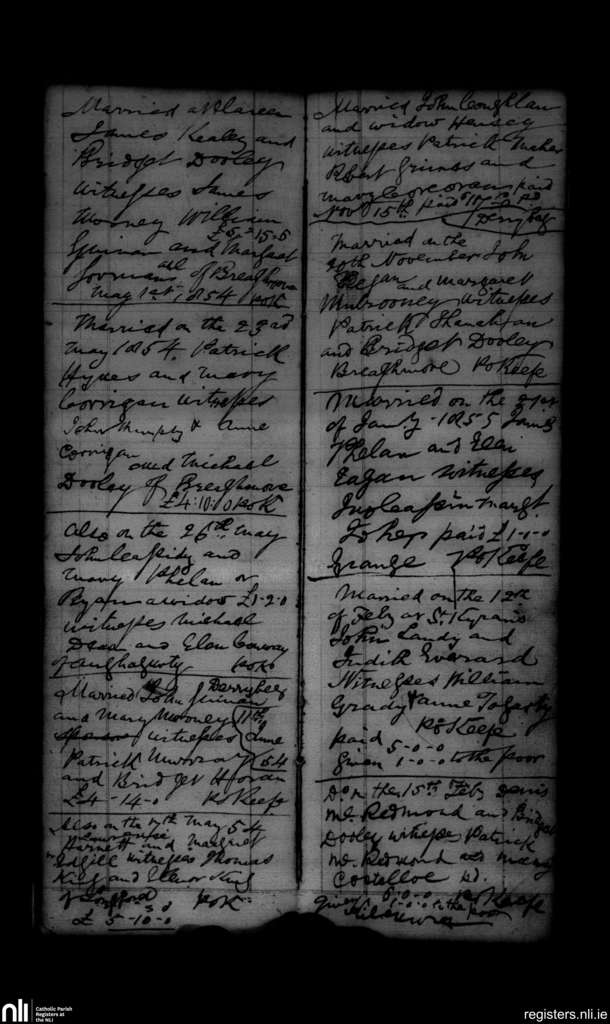 Married at
James Kealey and
Bridget Dooley
witnesses James
Mooney William
£5-15-5
Guinan and Margaret
Gorman all of Breaghmore
May 1st 1854 POK
Married on the 23rd
May 1854. Patrick
Hynes and Mary
Corrigan witnesses
John Murphy & Anne
Corrigan and Michael
Dooley of Breaghmore
£4-10-0 POK
Also on the 26th May
John Leahy and
Mary Phelan or
Ryan a widow £1-2-0
witnesses Michael
Dean and Ellen Conway
of POK
Derrybeg
Married John Guinan
and Mary Mooney 11th
witnesses June
Patrick Murray 54
and Bridget Horan
£4-14-0 POKeefe
Also on the May 54
Lawrence
Harnett and Margaret
Edgill witnesses Thomas
King and Ellenor King
of POK
£5-10-0
Married John Coughlan
and widow Hensey
witnesses Patrick Maher
Robert Grimes and
Mary Corcoran paid
Nov 15th paid
Derrybeg
Married on the
20th November John
Regan and Margaret
Mulrooney witnesses
Patrick Shanahan
and Bridget Dooley
Breaghmore POKeefe
Married on the 21st
of Jany - 1855 James
Phelan and Ellen
Eagan witnesses
Margt
Toher paid £1-0-0
Grange POKeefe
Married on the 12th
of Feby at St Kyrans
John Landy and
Judith Everard
Witnesses William
Grady & Anne Fogarty
POKeefe
paid 5-0-0
Given 1-0-0 to the poor
Do on the 15th Feby Denis
Mc Redmond and Bridget
Dooley witnesses Patrick
Mc Redmond and Mary
Costelloe pd.
6-0-0 POKeefe
given 1-0-0 to the poor
nli
Catholic Parish
Registers at
the NLI
registers.nli.ie